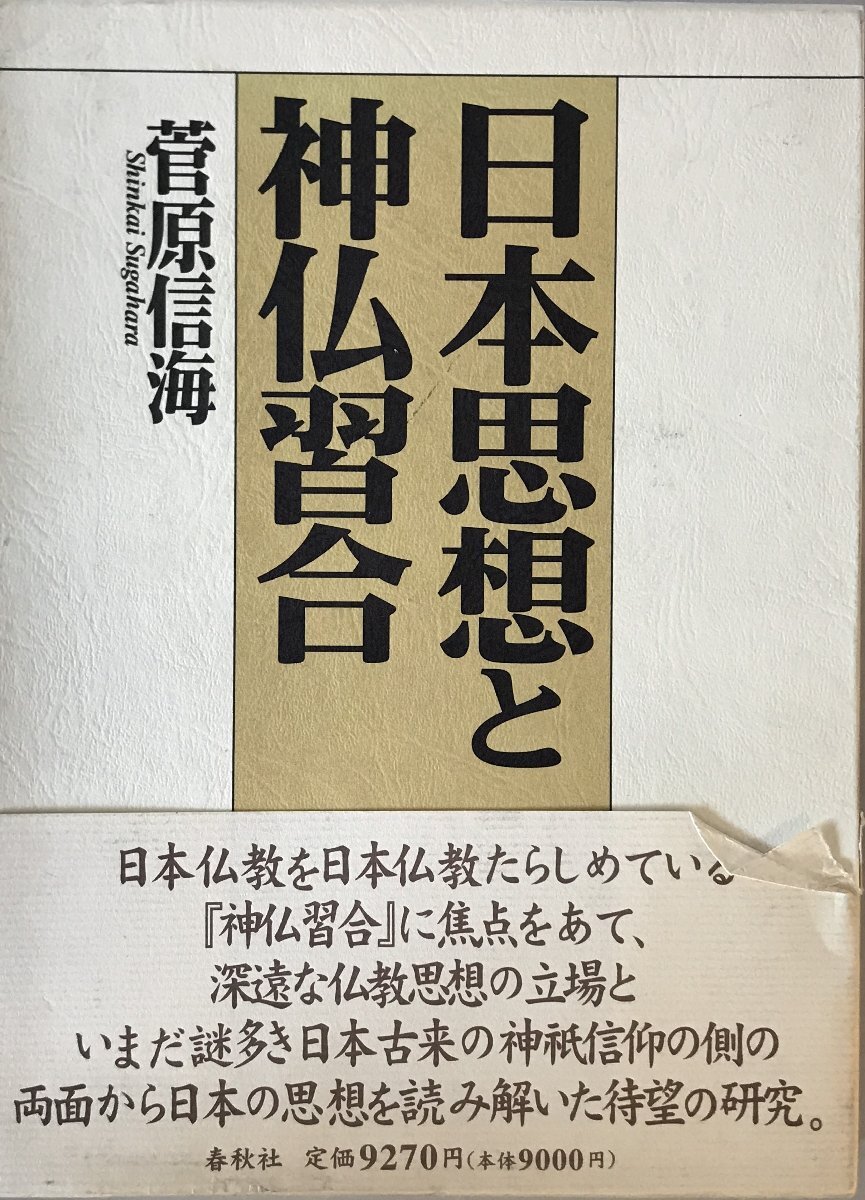 日本思想と
神仏習合
菅原信海
Shinkai Sugahara
日本仏教を日本仏教たらしめている
『神仏習合』に焦点をあて、
深遠な仏教思想の立場と
いまだ謎多き日本古来の神祇信仰の側の
両面から日本の思想を読み解いた待望の研究。
春秋社 定価9270円(本体9000円)